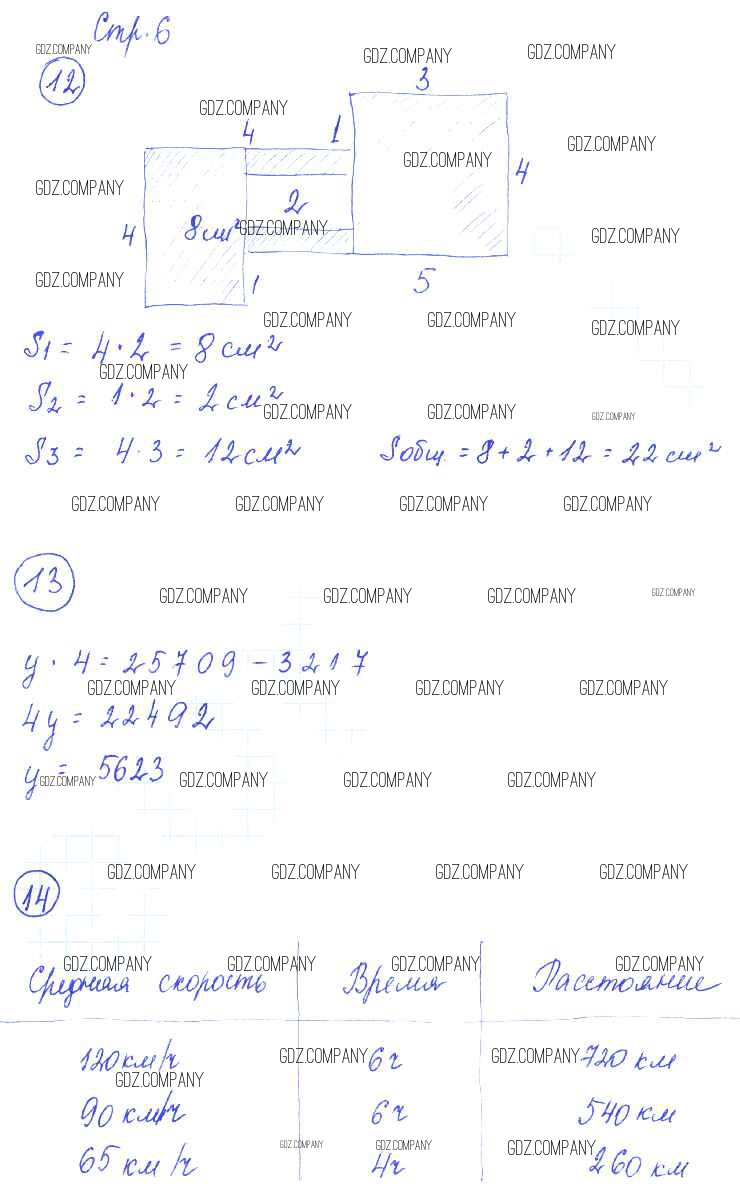 Стр. 6
GDZ.COMPANY
GDZ.COMPANY GDZ.COMPANY
12
3
GDZ.COMPANY
4 1
GDZ.COMPANY GDZ.COMPANY
4
GDZ.COMPANY
2
4 8 см² GDZ.COMPANY GDZ.COMPANY
GDZ.COMPANY
1 5
GDZ.COMPANY GDZ.COMPANY GDZ.COMPANY
S1 = 4 · 2 = 8 см²
GDZ.COMPANY
S2 = 1 · 2 = 2 см²
GDZ.COMPANY GDZ.COMPANY GDZ.COMPANY
S3 = 4 · 3 = 12 см² Sобщ. = 8 + 2 + 12 = 22 см²
GDZ.COMPANY GDZ.COMPANY GDZ.COMPANY GDZ.COMPANY
13
GDZ.COMPANY GDZ.COMPANY GDZ.COMPANY GDZ.COMPANY
y · 4 = 25709 - 3217
GDZ.COMPANY GDZ.COMPANY GDZ.COMPANY GDZ.COMPANY
4y = 22492
y = 5623
GDZ.COMPANY GDZ.COMPANY GDZ.COMPANY GDZ.COMPANY
GDZ.COMPANY GDZ.COMPANY GDZ.COMPANY GDZ.COMPANY
14
GDZ.COMPANY GDZ.COMPANY GDZ.COMPANY GDZ.COMPANY
Средняя скорость Время Расстояние
120 км/ч GDZ.COMPANY 6 ч GDZ.COMPANY 720 км
GDZ.COMPANY
90 км/ч 6 ч 540 км
GDZ.COMPANY GDZ.COMPANY GDZ.COMPANY
65 км/ч 4 ч 260 км